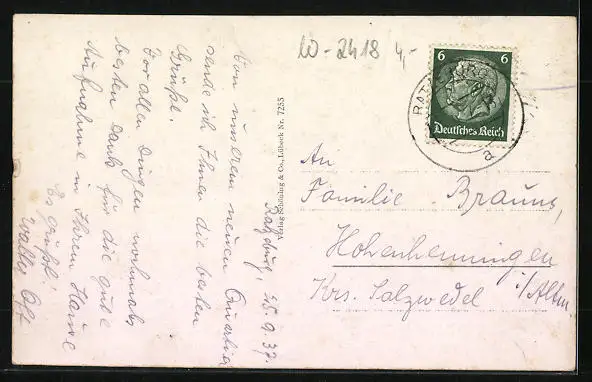 10-2418 4,-
6 6
Deutsches Reich
RATZEBURG
a
Verlag Schöning & Co., Lübeck Nr. 7255
Ratzeburg, 25.9.37.
Von unserem neuen Quartier
sende ich Ihnen die besten
Grüße.
Vor allen Dingen nochmals
besten Dank für die gute
Aufnahme in Ihrem Hause
Es grüßt
Walter Oft
An
Familie Brauns,
Hohenhenningen
Krs. Salzwedel i/Altm.